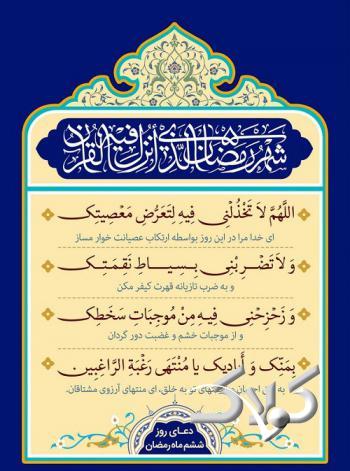 شهر رمضان الذي أنزل فيه القرآن
اللَّهُمَّ لاَ تَخْذُلْنِي فِيهِ لِتَعَرُّضِ مَعْصِيَتِكَ
ای خدا مرا در این روز بواسطه ارتکاب عصیانت خوار مساز
وَ لاَ تَضْرِبْنِي بِسِيَاطِ نَقِمَتِكَ
و به ضرب تازیانه قهرت کیفر مکن
وَ زَحْزِحْنِي فِيهِ مِنْ مُوجِبَاتِ سَخَطِكَ
و از موجبات خشم و غضبت دور گردان
بِمَنِّكَ وَ أَيَادِيكَ يَا مُنْتَهَى رَغْبَةِ الرَّاغِبِينَ
به تو به خلق، ای منتهای آرزوی مشتاقان.
دعای روز
ششم ماه رمضان